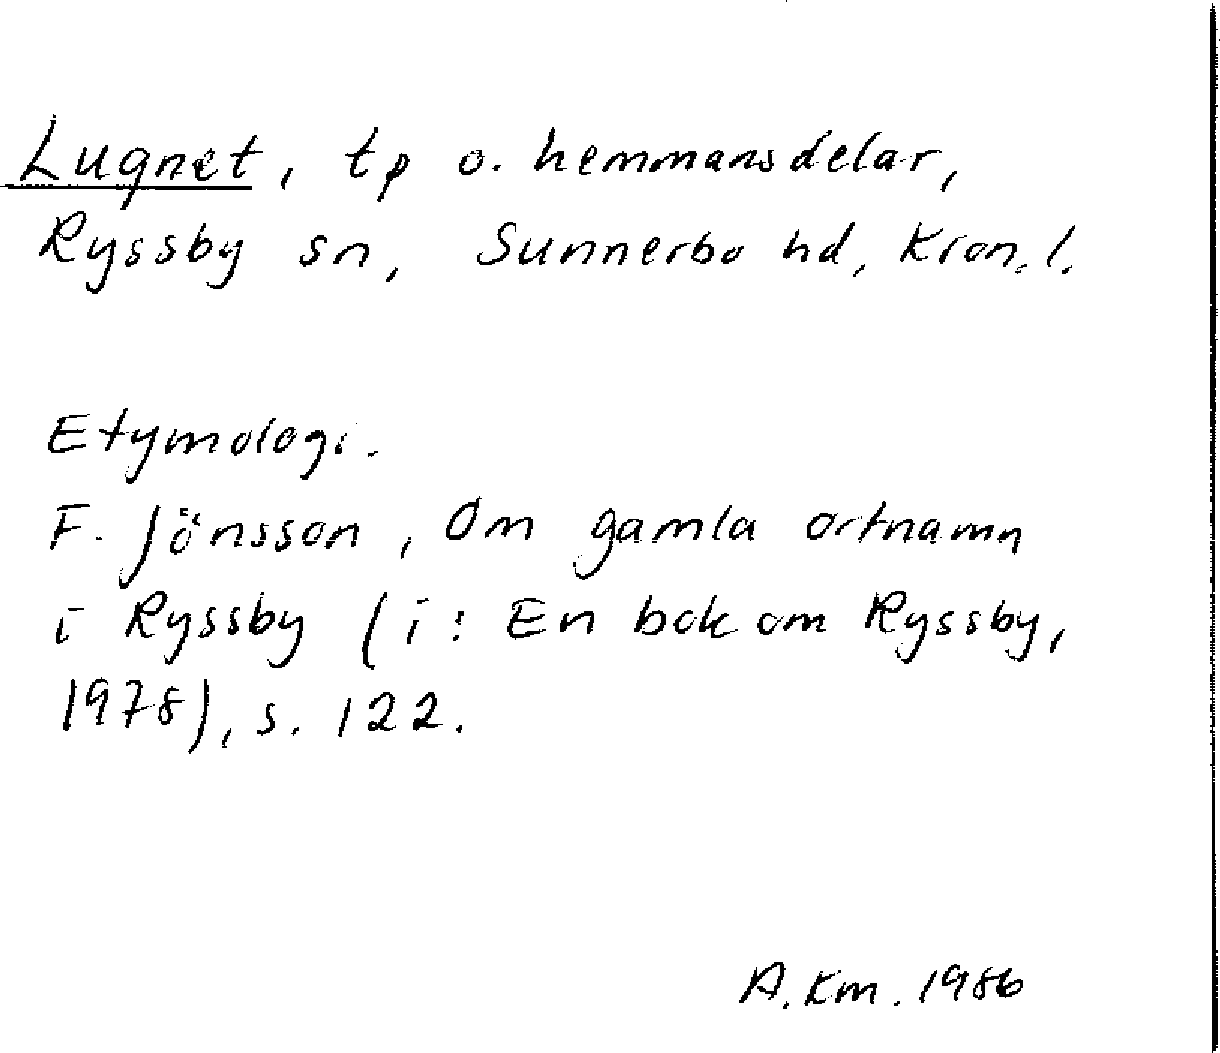 Lugnet, tp o. hemmansdelar,
Ryssby sn, Sunnerbo hd, Kron. l.
Etymologi.
F. Jönsson, Om gamla ortnamn
i Ryssby (i: En bok om Ryssby,
1978), s. 122.
A. Km. 1986